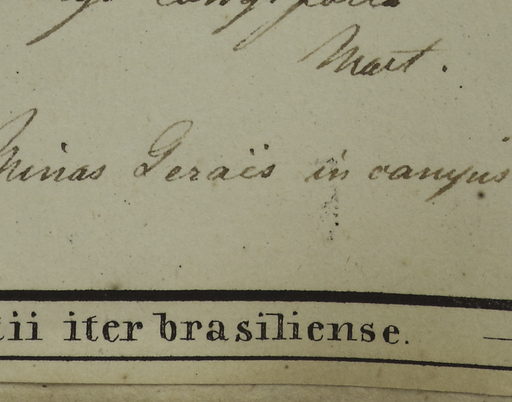 Mart.
Minas Geraës in campis
tii iter brasiliense.